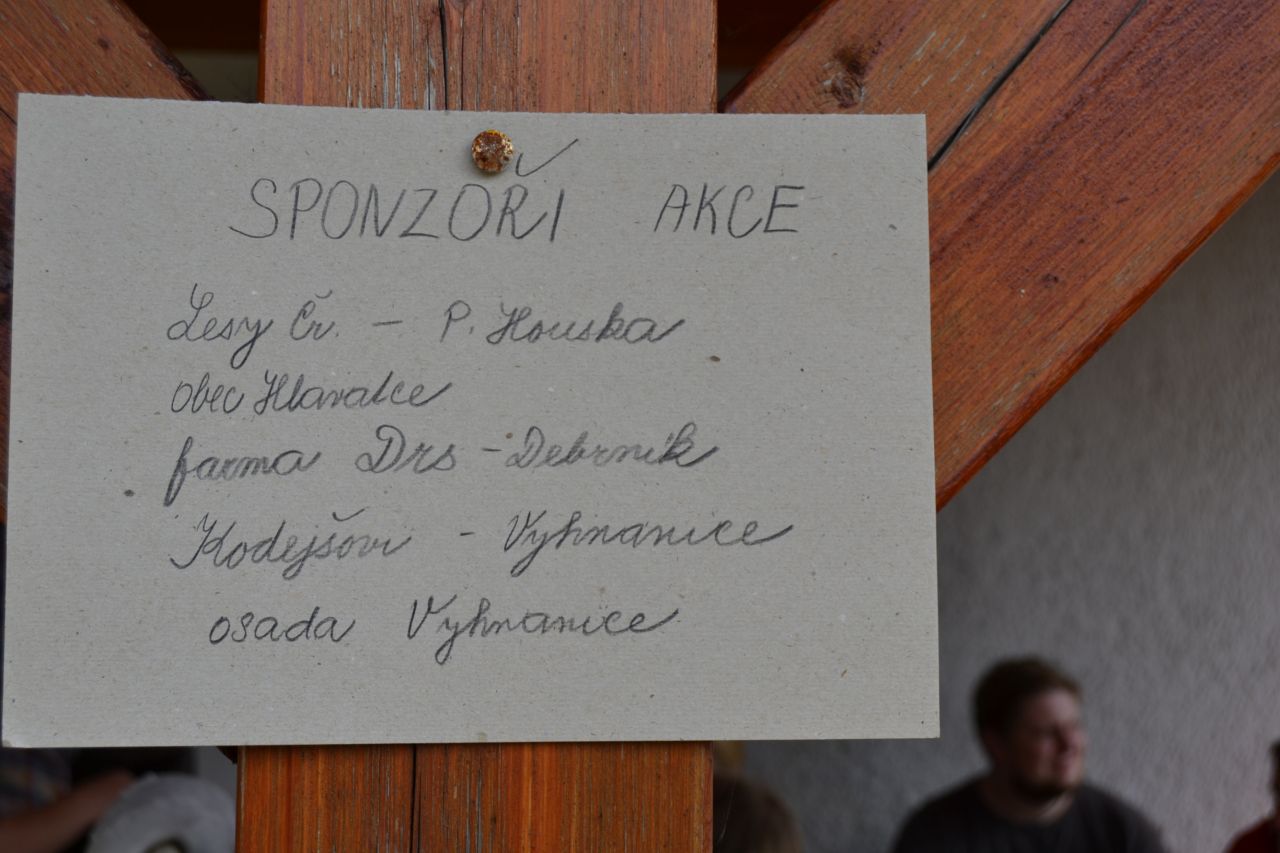 SPONZOŘI AKCE
Lesy Čr. - P. Houska
obec Hlavatce
farma Drs - Debrník
Kodejšovi - Vyhnanice
osada Vyhnanice